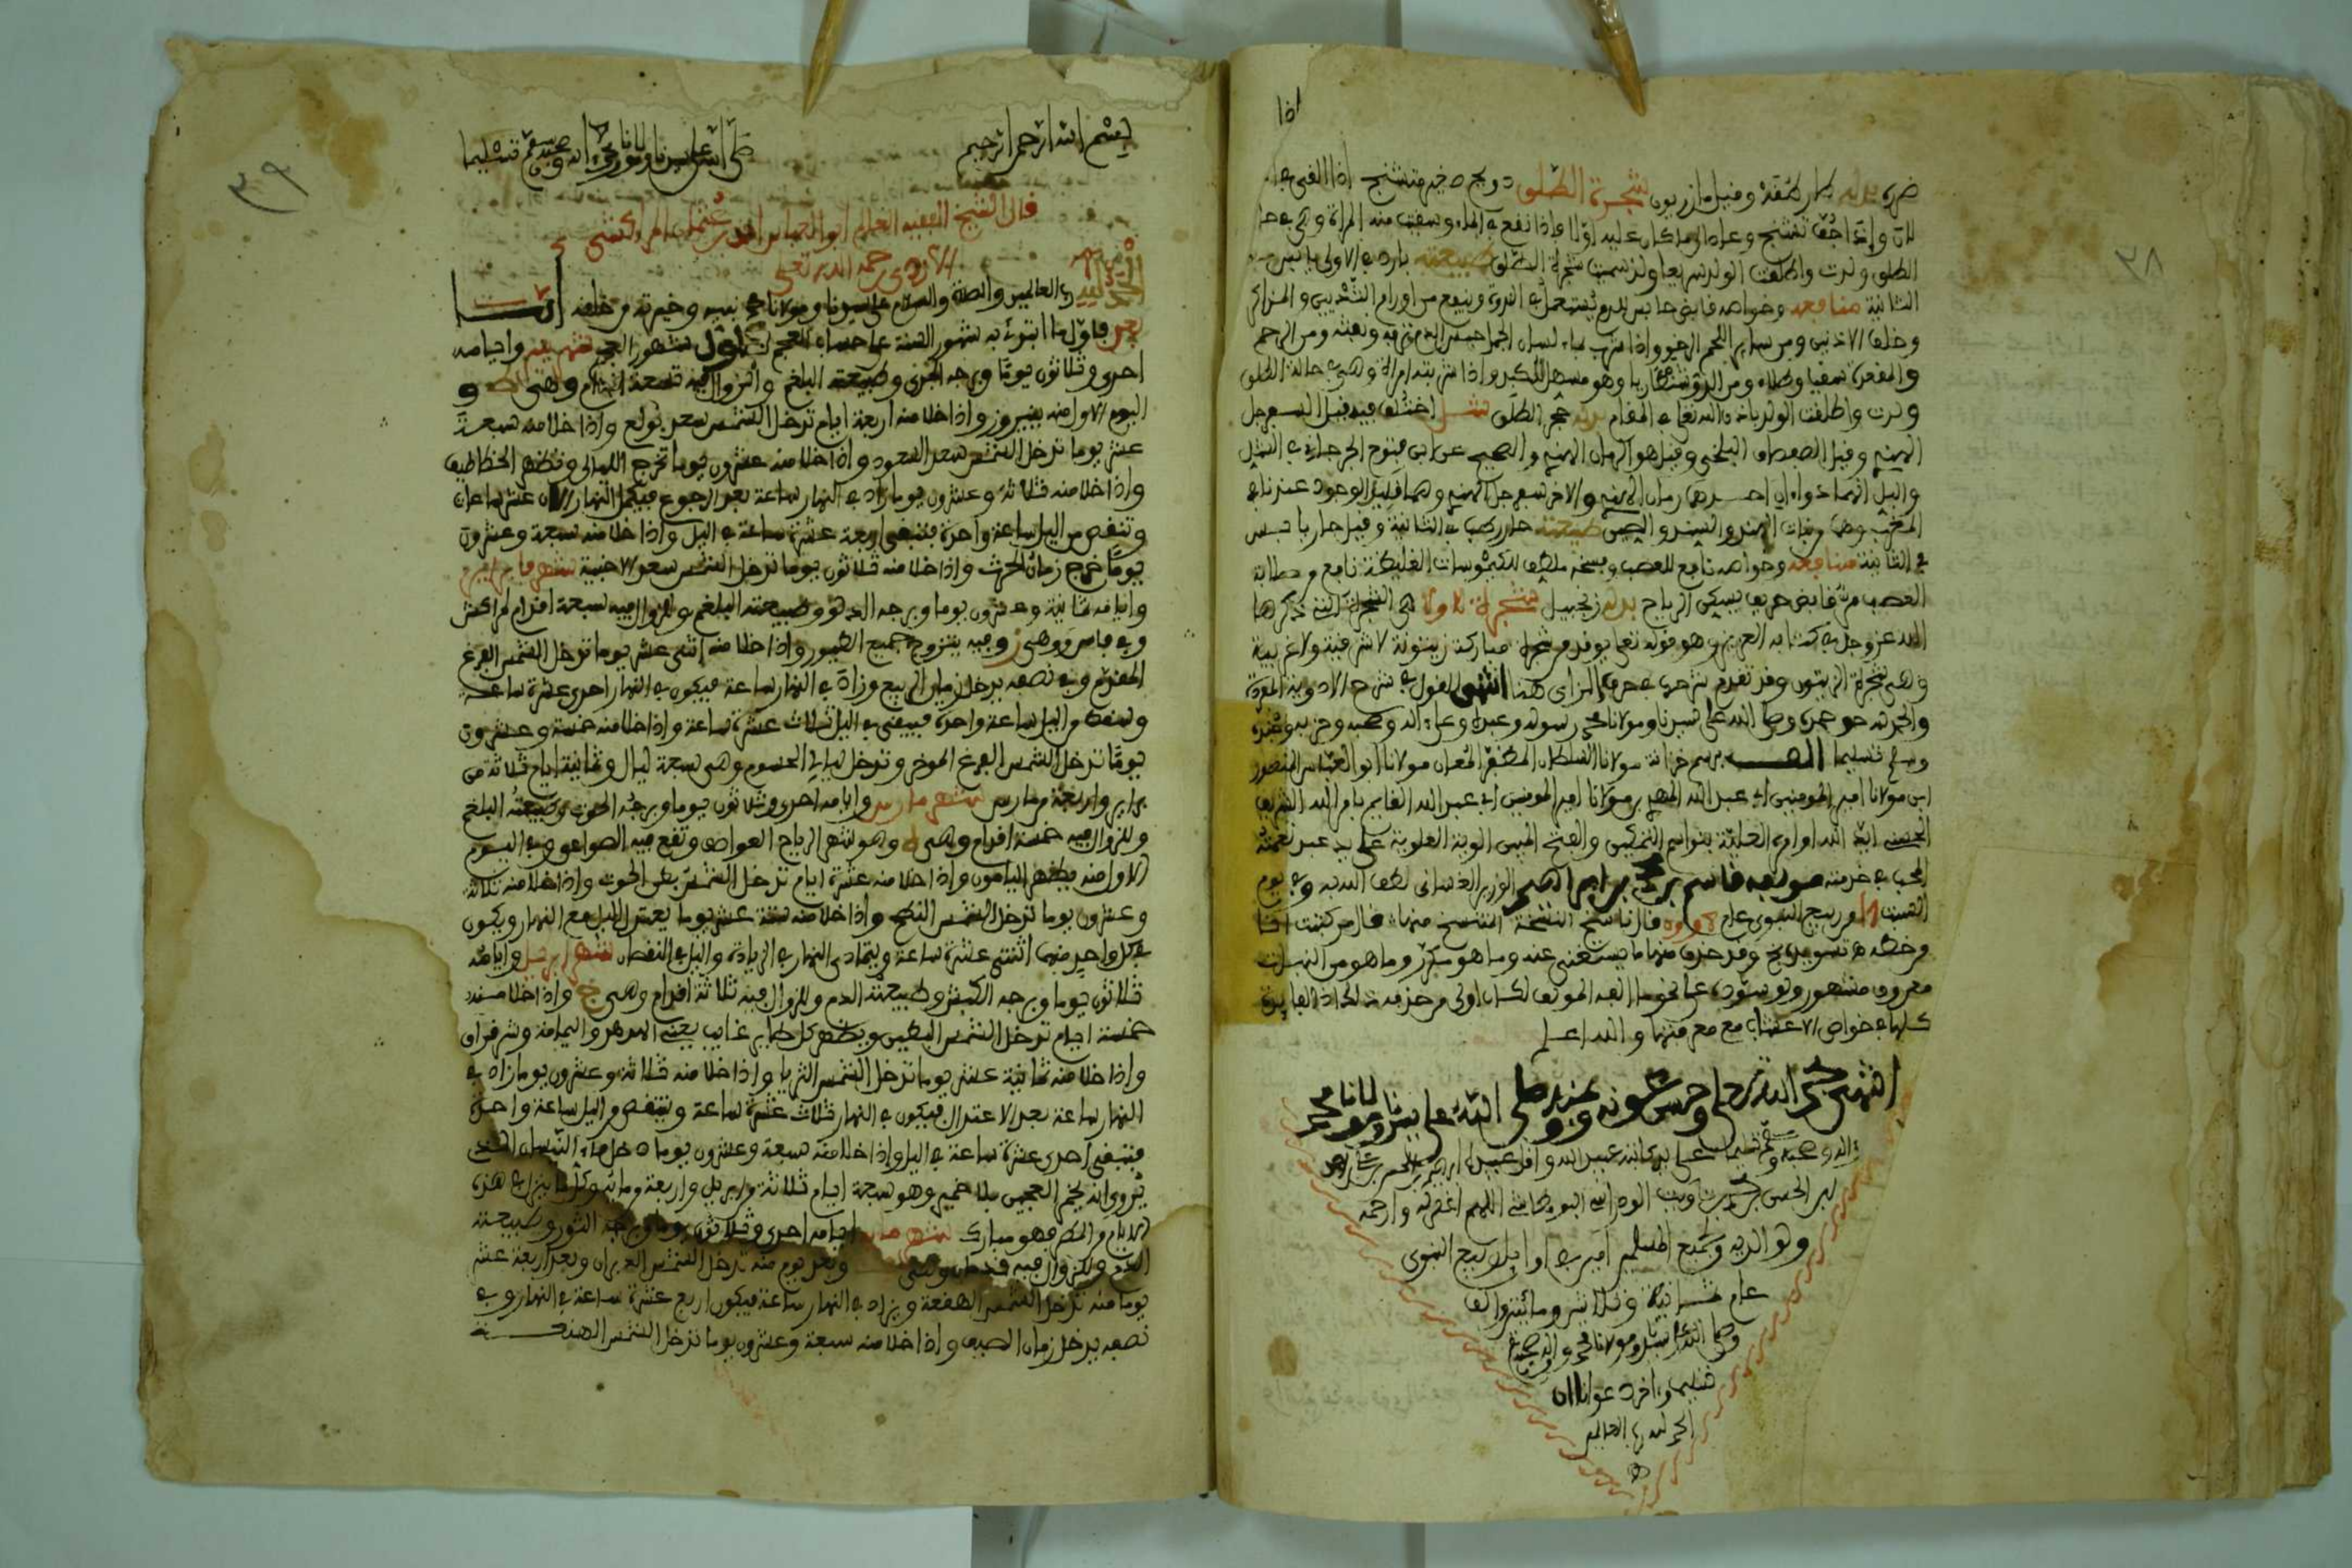 ٣٨
ضره بدله وقيل مازريون شجرة الطلق
لان وإذا جف تشنج وعاد الى ما كان عليه اولا واذا نقع في الماء وسقيت منه المراة وهي في
الطلق ولدت واطلقت الولد سريعا ولذا سميت شجرة الطلق طبيعته بارد في الاولى يابس
الثانية منافعه وخواصه قابض حابس للدم ينفع من اورام الثديين والمذاكر
وخلف الاذنين ومن ساير اللحم الرخو واذا شرب بماء لسان الحمل حبس الدم ونفثه ومن الرحم
والمقعدة سقيا وطلاء وهو مسهل للكبد واذا شربته امراة وهي في حالة الطلق
ولدت واطلقت الولد باذن الله تعالى في المقام بدله حجر الطلق شل اختلف فيه قيل السفرجل
الهندي وقيل هو الرمان الهندي والصحيح عن ابي
رمان الهند والاخر سفرجل الهند وهما قليل الوجود عندنا في
المغرب وهما من نبات الهند والسند والصين طبيعته حار رطب في الثانية وقيل حار يابس
في الثانية منافعه وخواصه نافع للعصب ويسخنه ملطف للكيموسات الغليظة نافع من صلابة
العصب مر قابض حريف يسكن الرياح بدله زنجبيل شجرة هي الشجرة التي ذكرها
الله عز وجل في كتابه العزيز وهو قوله تعالى يوقد من شجرة مباركة زيتونة لا شرقية ولا غربية
وهي شجرة الزيتون وقد تقدم شرحها في حرف الزاي هنا انتهى القول في شرح الادوية المفردة
والحمد لله حق حمده وصلى الله على سيدنا ومولانا محمد رسوله وعبده وعلى اله وصحبه وحزبه وجنده
وسلم تسليما برسم خزانة مولانا السلطان المظفر المعان مولانا ابو العباس المنصور
ابن مولانا امير المومنين ابي عبد الله المهدي بن مولانا امير المومنين ابي عبد الله القايم بامر الله الشريف
الحسني ايد الله اوامره العلية بتواسم التمكين والفتح المبين الوية العلوية على يد عبد نعمته
المحب في خدمته مولفه قاسم بن محمد بن ابراهيم الوزير الغساني لطف الله به وفي يوم
السبت من ربيع النبوي عام قال ناسخ النسخة المنتسخ منها قال من كتبت انا
من خطه هو تسويد وقد حذف منها ما يستغنى عنه وما هو مكرر وما هو من النبات
معروف مشهور ولو سود على نحو ما الفه المولف لكان اولى من حذفه تلك الفايدة
كلها في خواص الاعشاب مع معرفتها والله اعلم
انتهى بحمد الله تعالى وحسن عونه وصلى الله على سيدنا ومولانا محمد
واله وصحبه وسلم تسليما على يد كاتبه عبيد الله واقل عبيده
ابن الحسن بن اللهم اغفر له وارحمه
ولوالديه ولجميع المسلمين امين في اوايل ربيع النبوي
عام ثمانية وثلاثين ومائتين والف
وصلى الله على سيدنا ومولانا محمد واله وصحبه
تسليما واخر دعوانا ان
الحمد لله رب العالمين
٣٩
بسم الله الرحمن الرحيم صلى الله على سيدنا ومولانا محمد واله وصحبه وسلم تسليما
قال الشيخ الفقيه العالم ابو العباس احمد بن عثمان المراكشي
الازدي رحمه الله تعالى
الحمد لله رب العالمين والصلاة والسلام على سيدنا ومولانا محمد نبيه وخيرته من خلقه
فاول ما ابتدئ به شهور السنة على حساب العجم اول شهور العجم شهر ينير وايامه
احدى وثلاثون يوما وبرجه الجدي وطبيعته البلغم والزوال فيه تسعة اقدام وهي
اليوم الاول منه ينيروز واذا خلا منه اربعة ايام تدخل الشمس سعد بولع واذا خلا منه سبعة
عشر يوما تدخل الشمس سعد السعود واذا خلا منه عشرون يوما تخرج الليالي وتظهر الخطاطيف
واذا خلا منه ثلاثة وعشرون يوما زاد في النهار ساعة بعد الرجوع فيكمل النهار الان عشر ساعات
وتنقص من الليل ساعة واحدة فتبقى اربعة عشرة ساعة في الليل واذا خلا منه سبعة وعشرون
يوما خرج زمان الحرث واذا خلا منه ثلاثون يوما تدخل الشمس سعد الاخبية شهر فبراير
وايامه ثمانية وعشرون يوما وبرجه الدلو وطبيعته البلغم والزوال فيه سبعة اقدام لمراكش
وفي فاس وهي ز وفيه يتزوج جميع الطيور واذا خلا منه اثنى عشر يوما تدخل الشمس الفرغ
المقدم وفي نصفه يدخل زمان الربيع وزاد في النهار ساعة فيكون في النهار احدى عشرة ساعة
وينقص من الليل ساعة واحدة فيبقى في الليل ثلاث عشرة ساعة واذا خلا منه خمسة وعشرون
يوما تدخل الشمس الفرغ الموخر وتدخل ليالي الحسوم وهي سبعة ليال وثمانية ايام ثلاثة من
براير واربعة من مارس شهر مارس وايامه احدى وثلاثون يوما وبرجه الحوت وطبيعته البلغم
وللزوال فيه خمسة اقدام وهي ه وهو شهر الرياح العواصف وتقع فيه الصواعق وفي اليوم
الاول منه يظهر اليامون واذا خلا منه عشرة ايام تدخل الشمس بطن الحوت واذا خلا منه ثلاثة
وعشرون يوما تدخل الشمس النطح واذا خلا منه ستة عشر يوما يعتدل الليل مع النهار ويكون
في كل واحد منهما اثنتى عشرة ساعة ويتمادى النهار في الزيادة والليل في النقصان شهر ابريل وايامه
ثلاثون يوما وبرجه الكبش وطبيعته الدم وللزوال فيه ثلاثة اقدام وهي ج واذا خلا منه
خمسة ايام تدخل الشمس البطين ويظهر كل طاير غايب يعني الهدهد واليمامة وشرقراق
واذا خلا منه ثمانية عشر يوما تدخل الشمس الثريا واذا خلا منه ثلاثة وعشرون يوما زاد في
النهار ساعة بعد الاعتدال فيكون في النهار ثلاث عشرة ساعة وينقص من الليل ساعة واحدة
فتبقى احدى عشرة ساعة في الليل واذا خلا منه سبعة وعشرون يوما دخل ماء النيسان الذي
يروى انه يخمر العجين بلا خمير وهو سبعة ايام ثلاثة من ابريل واربعة من مايه وكل ما ينزل في هذه
الايام من المطر فهو مبارك شهر مايه ايامه احدى وثلاثون يوما وبرجه الثور وطبيعته
الدم وللزوال فيه قدمان وهي وبعد يوم منه تدخل الشمس الدبران وبعد اربعة عشر
يوما منه تدخل الشمس الهقعة ويزاد في النهار ساعة فيكون اربع عشرة ساعة في النهار وفي
نصفه يدخل زمان الصيف واذا خلا منه سبعة وعشرون يوما تدخل الشمس الهنعة